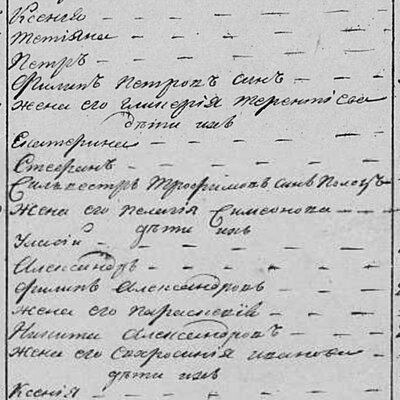 Ксенія
Тетіяна
Петръ
Филипъ Петровъ синъ
Жена его Гликерія Терентіева
дѣти ихъ
Екатерина
Стефанъ
Силвестръ Трофимовъ синъ
Жена его Пелагія Симеонова
дѣти ихъ
Александръ
Филипъ Александровъ
Жена его Параскевія
Никити Александровъ
Жена его Евфросинія Иванова
дѣти ихъ
Ксенія